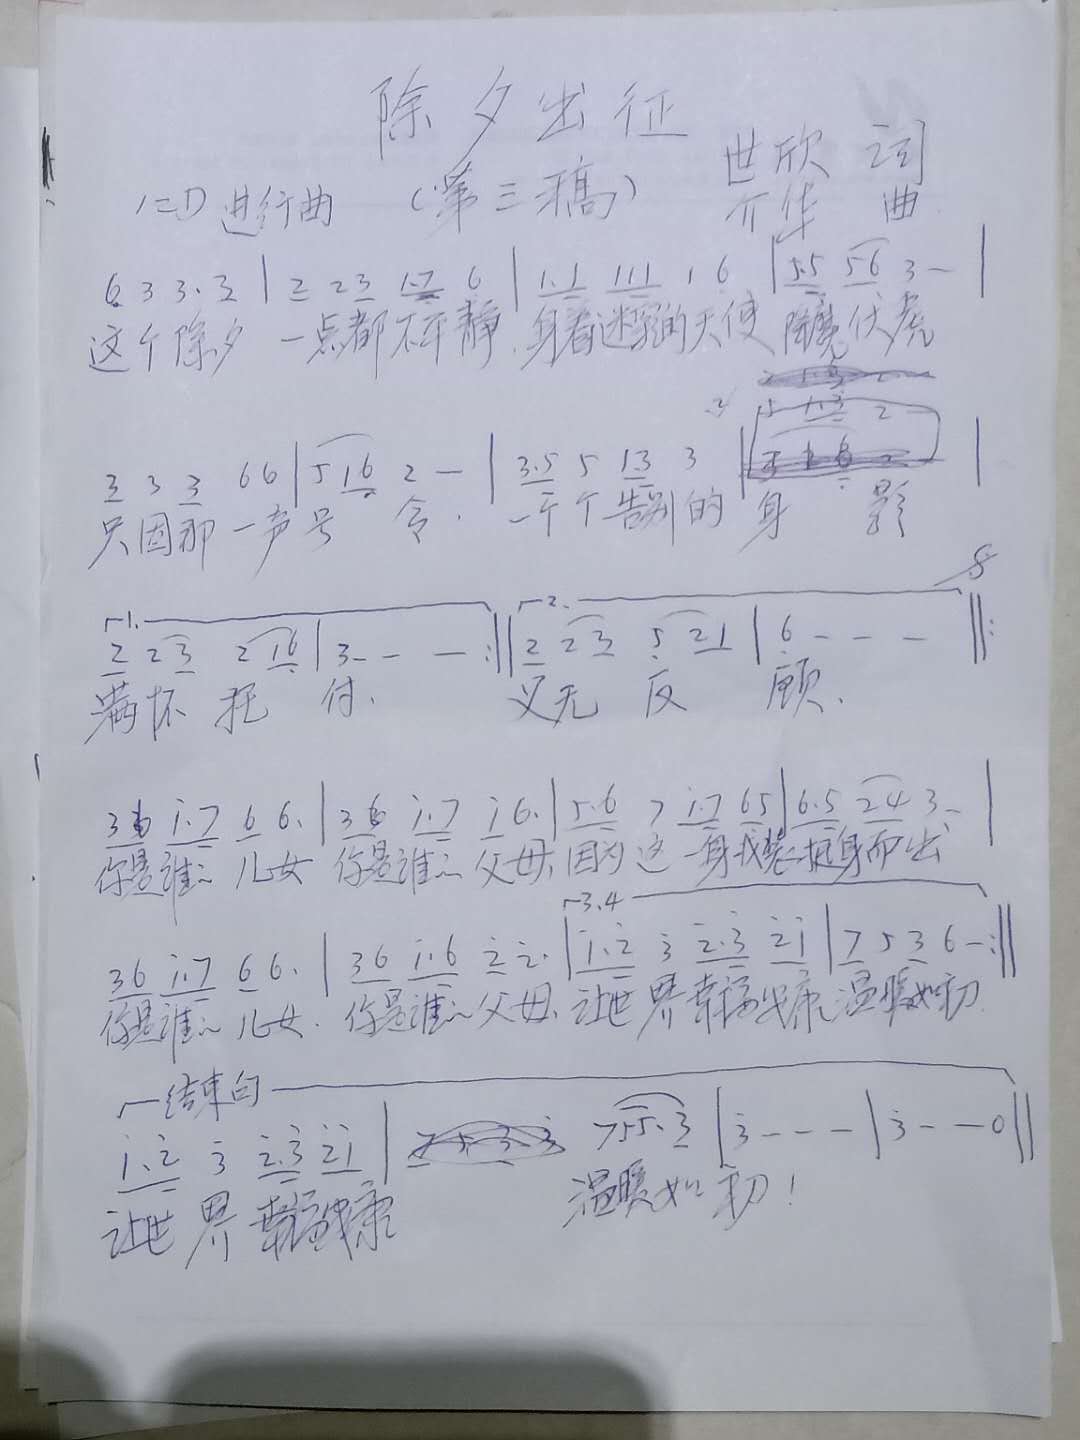 除夕出征
(第三稿)
世欣 词
1=D 进行曲
亓华 曲
6 3 3. 3 | 2 23 1.7 6 | 1.1 111 1 6 | 5.5 56 3 — |
这个除夕 一点都不平静. 身着迷彩的天使 降魔伏虎
3 3 3 66 | 5 16 2 — | 3.5 5 13 3 | 5 1.3 2 |
只因那一声号 令. 一个个告别的 身 影
1. 2.
2 23 2 16 | 3 - - — :|| 2 23 5 21 | 6 - - - ||:
满怀 托 付. 义无 反 顾.
36 i.7 6 6. | 36 i.7 i 6. | 5.6 7 i.7 65 | 6.5 24 3 - |
你是谁的 儿女 你是谁的 父母, 因为 这一身戎装挺身而出
3.4
36 i.7 6 6. | 36 i.6 2 2. | i.2 3 2.3 2i | 7 5 3 6 - :||
你是谁的 儿女. 你是谁的 父母, 让世 界幸福安康 温暖如初.
结束句
i.2 3 2.3 2i | 755. 3 | 3 - - - | 3 - - 0 ||
让世 界 幸福安康 温暖如 初!